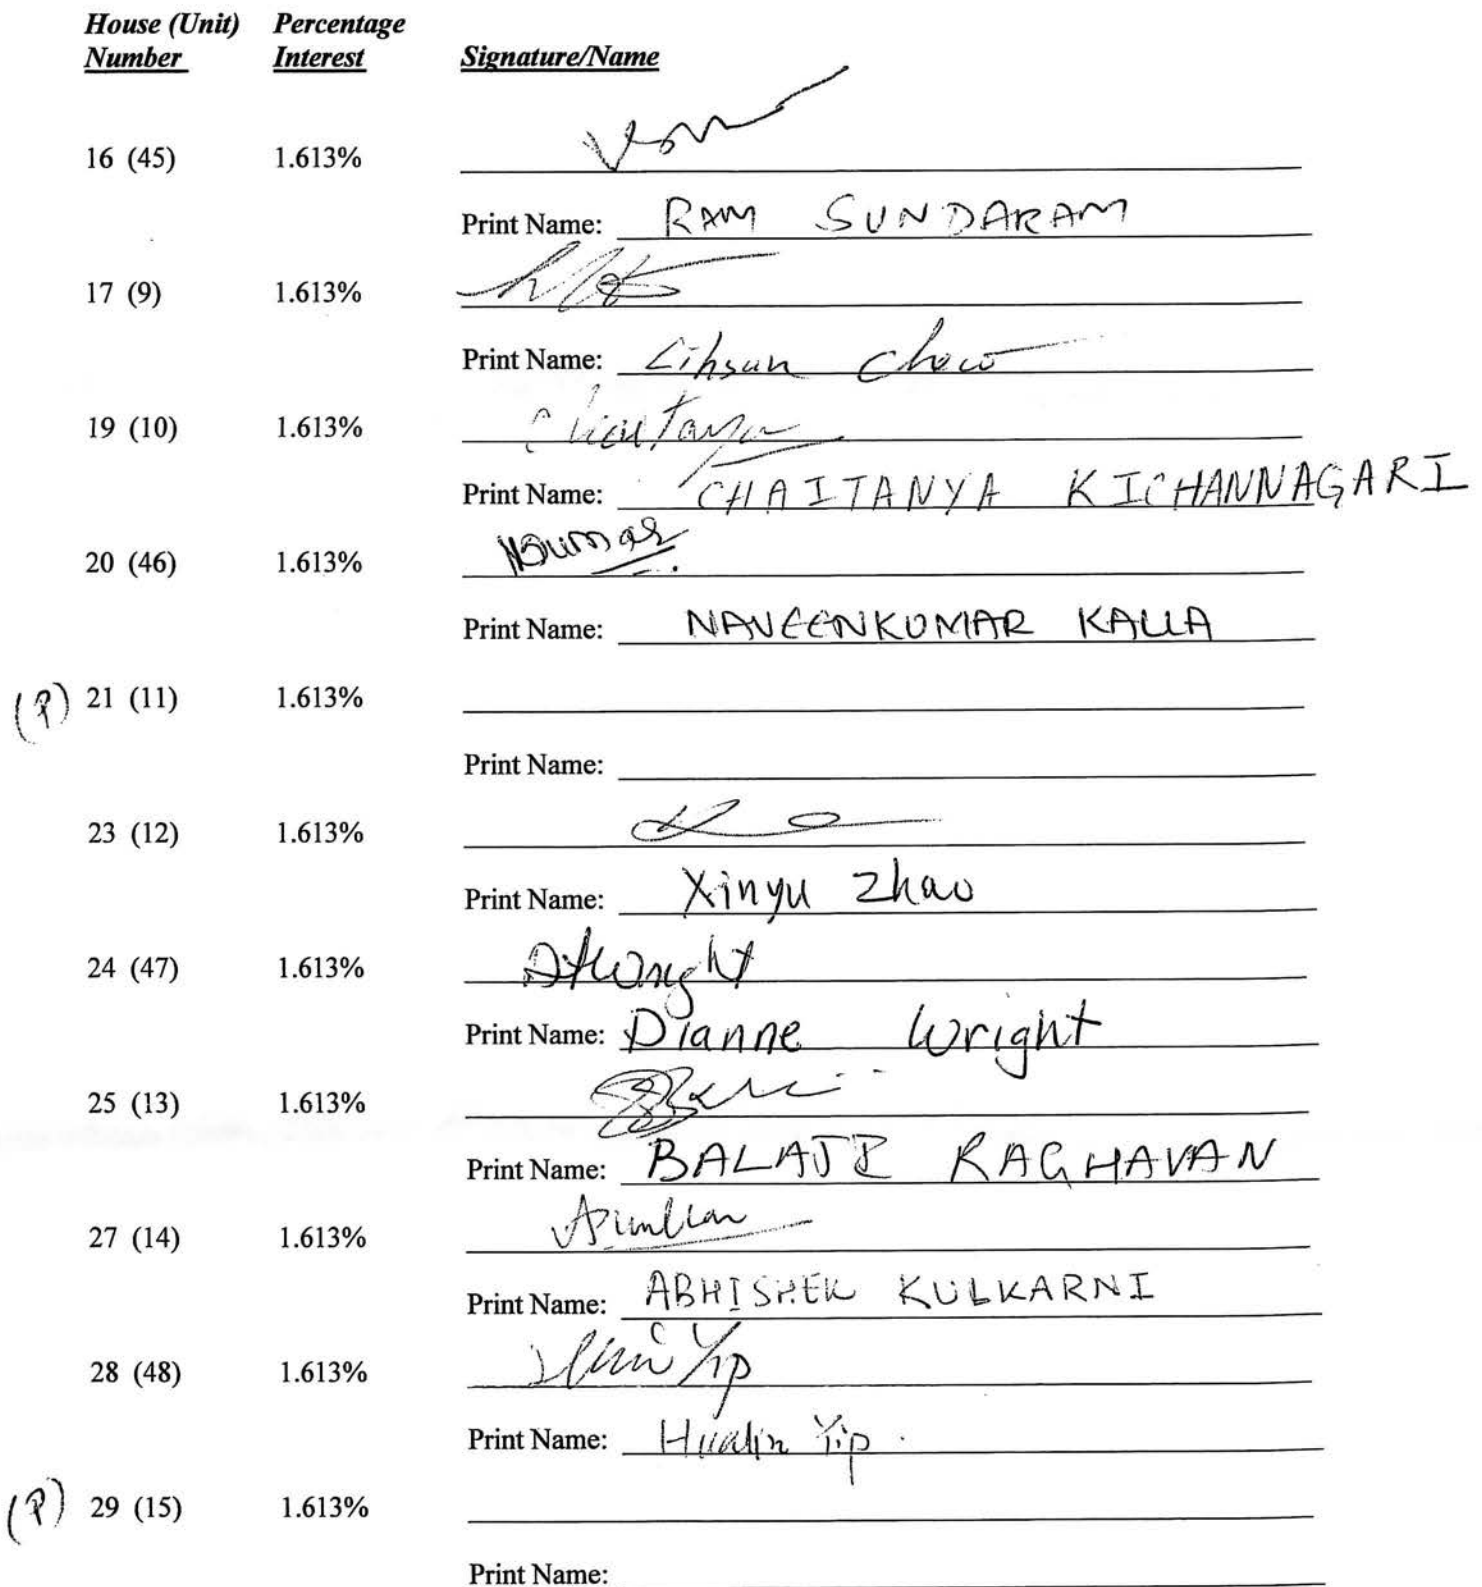 House (Unit) Percentage
Number Interest Signature/Name
16 (45) 1.613%
Print Name: RAM SUNDARAM
17 (9) 1.613%
Print Name: Lihsun Chow
19 (10) 1.613% Chaitanya
Print Name: CHAITANYA KICHANNAGARI
20 (46) 1.613%
Print Name: NAVEENKUMAR KALLA
(P) 21 (11) 1.613%
Print Name:
23 (12) 1.613%
Print Name: Xinyu Zhao
24 (47) 1.613%
Print Name: Dianne Wright
25 (13) 1.613%
Print Name: BALAJI RAGHAVAN
27 (14) 1.613%
Print Name: ABHISHEK KULKARNI
28 (48) 1.613% Yip
Print Name: Hualin Yip
(P) 29 (15) 1.613%
Print Name: